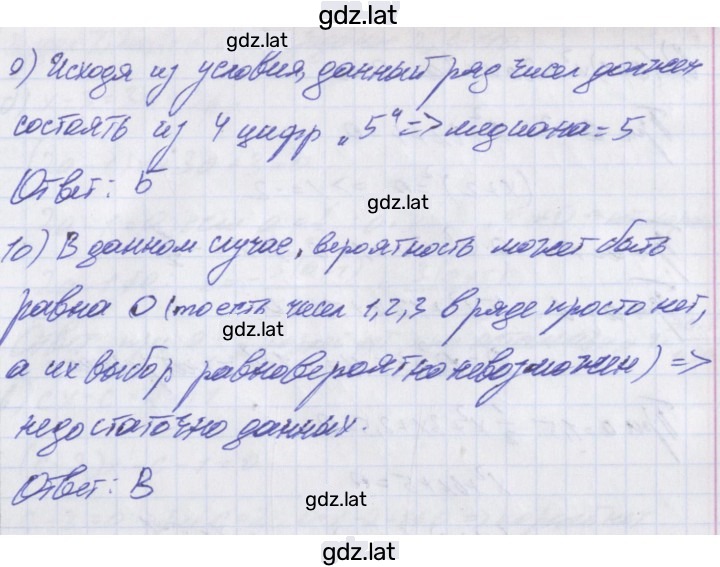 gdz.lat
gdz.lat
9) Исходя из условия, данный ряд чисел должен
состоять из 4 цифр „5“ => медиана = 5
Ответ: б
gdz.lat
10) В данном случае, вероятность может быть
равна 0 (то есть чисел 1, 2, 3 в ряде просто нет,
gdz.lat
а их выбор равновероятно невозможен) =>
недостаточно данных.
Ответ: В
gdz.lat
gdz.lat